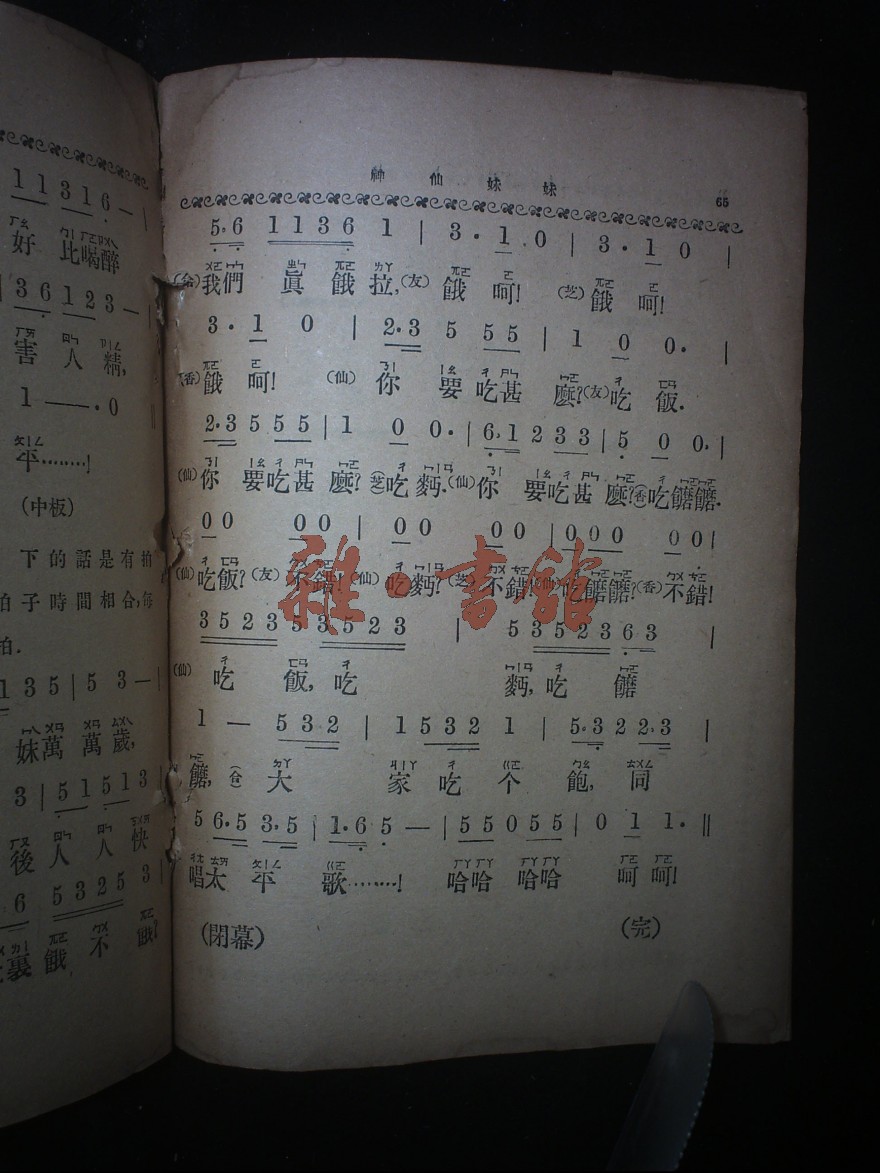 神仙妹妹 65
5·6 1136 1 | 3·1 0 | 3·1 0 |
(仝)我們 眞 餓 拉,(友)餓 呵! (芝)餓 呵!
3·1 0 | 2·3 5 55 | 1 0 0· |
(香)餓 呵! (仙)你 要 吃甚 麽?(友)吃 飯.
2·3 5 55 | 1 0 0· | 6·1 2 33 | 5 0 0· |
(仙)你 要吃甚 麽?(芝)吃 麪.(仙)你 要吃甚 麽?(香)吃饝饝.
00 00 | 00 00 | 000 00 |
(仙)吃飯?(友)不錯!(仙)吃麪?(芝)不錯!(仙)吃饝饝?(香)不錯!
3523 53523 | 5 3523 63 |
(仙) 吃 飯, 吃 麪, 吃 饝
1 — 532 | 1 532 1 | 5·3 2 2·3 |
饝,(仝)大 家 吃 个 飽, 同
5 6·5 3·5 | 1·6 5 — | 55055 | 0 1 1· ||
唱太 平 歌………! 哈哈 哈哈 呵 呵!
(閉幕) (完)
11316 — |
好 比喝醉
36 123 — |
害 人 精,
1 — — · 0 ||
平………!
(中板)
下的話是有拍
拍子時間相合,每
拍.
135 | 53 — |
妹萬 萬歲,
3 | 51513 |
後人 人 快
6 5325 3 |
裏餓 不 餓?
雜·書館